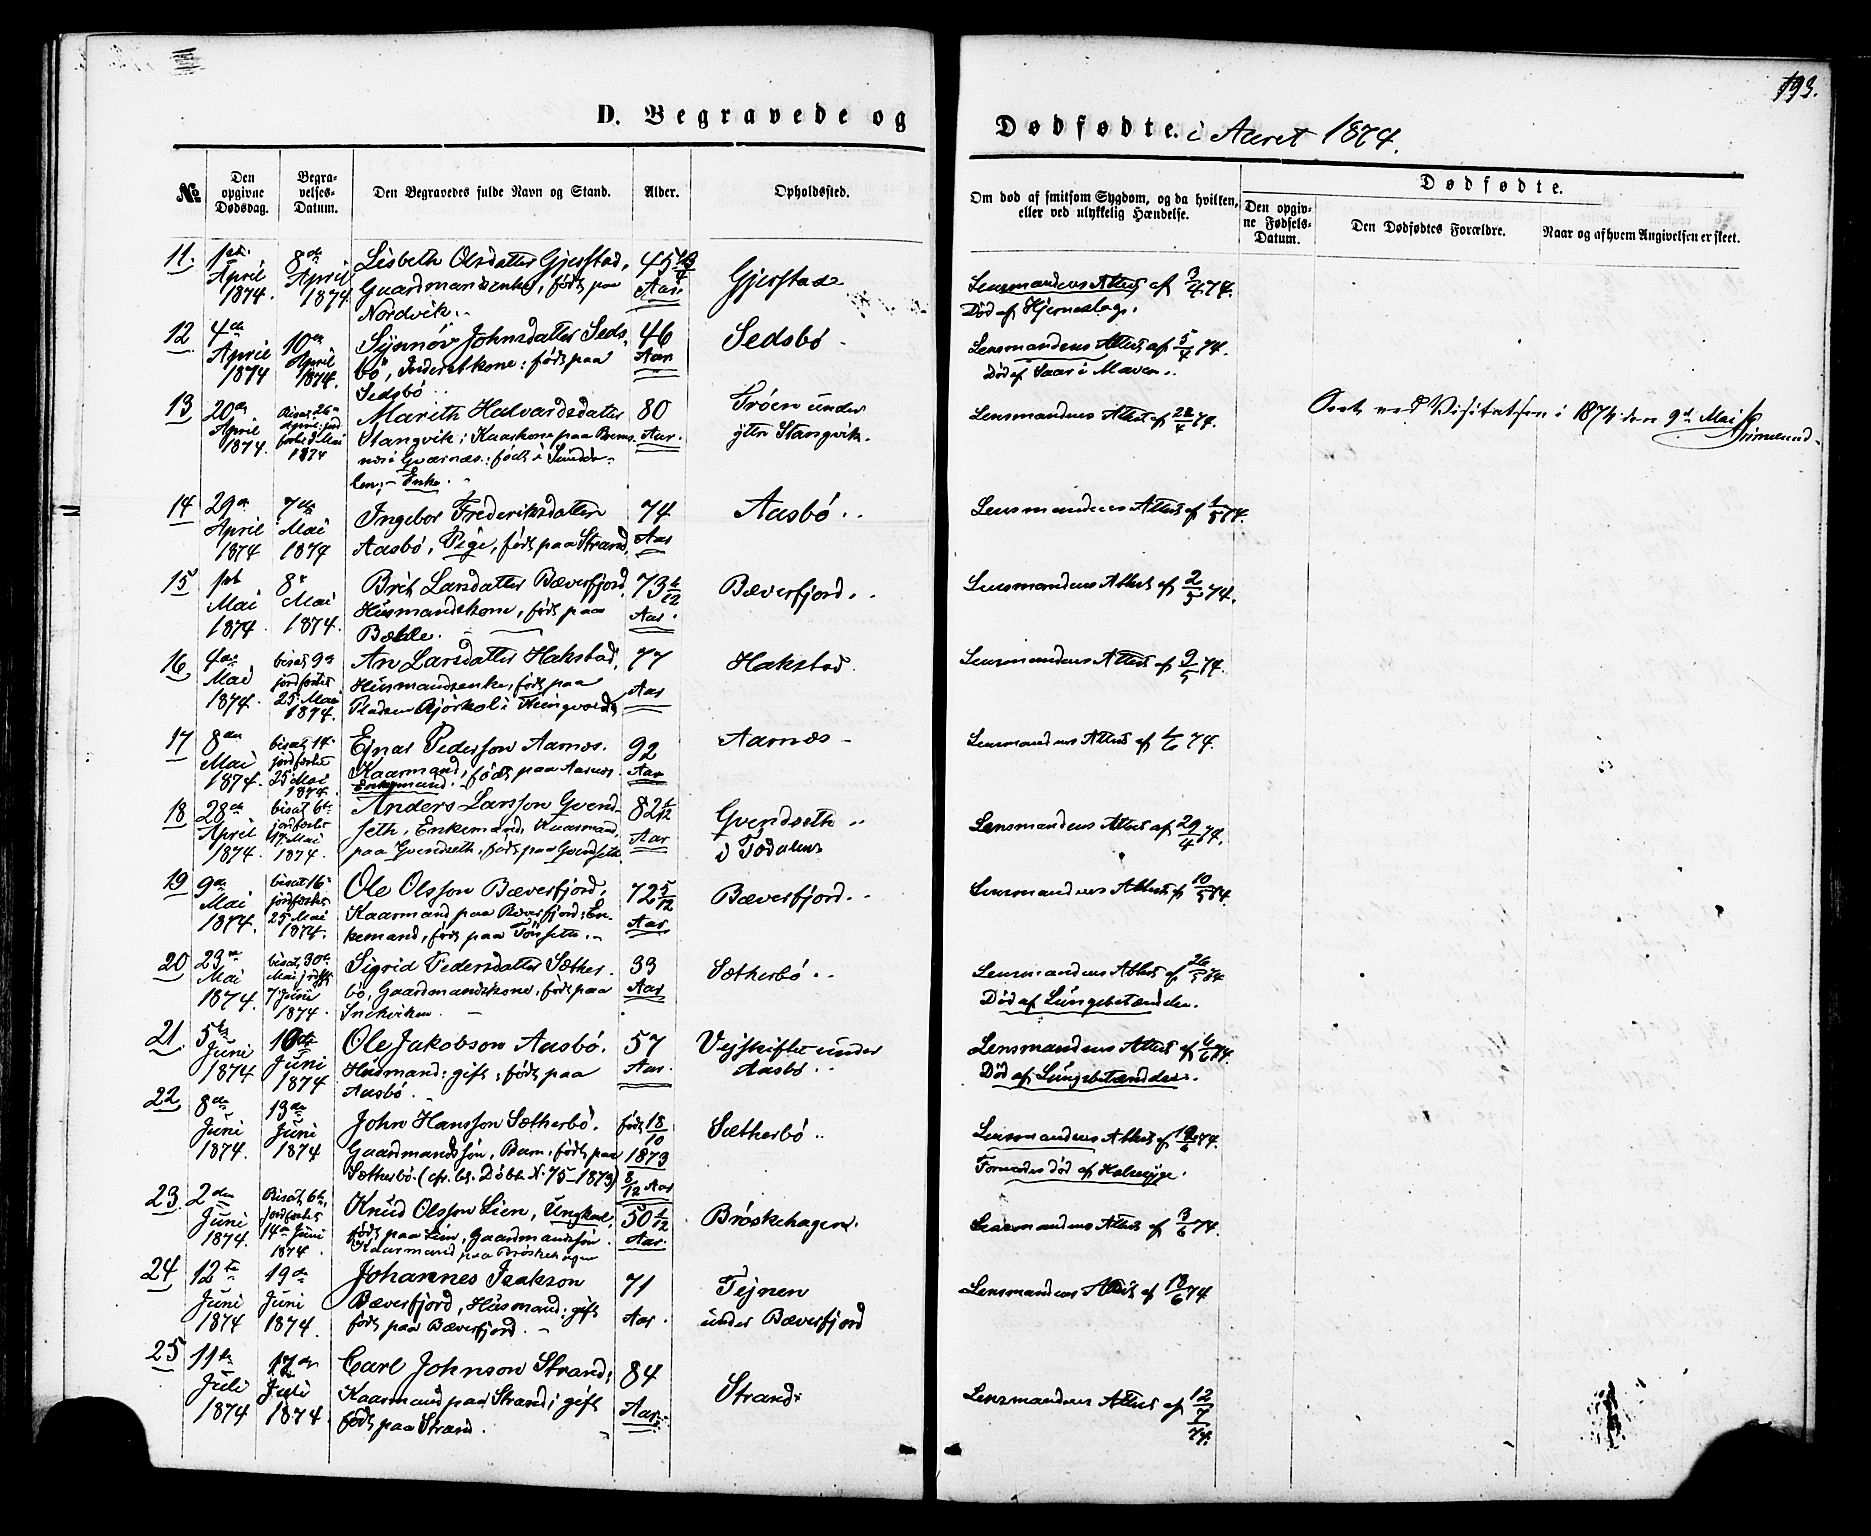 193.
D. Begravede og Dødfødte. i Aaret 1874.
№
Den opgivne Dødsdag.
Begravelses-Datum.
Den Begravedes fulde Navn og Stand.
Alder.
Opholdssted.
Om død af smitsom Sygdom, og da hvilken, eller ved ulykkelig Hændelse.
Dødfødte.
Den opgivne Fødsels-Datum.
Den Dødfødtes Forældre.
Naar og af hvem Angivelsen er skeet.
11. 1ste April 1874. 8de April 1874
Lisbeth Olsdatter Gjerstad,
Gaardmandsenke, født paa
Nordvik.
45 Aar
Gjerstad
Lensmandens Attest af 3/4 74.
Død af Hjerneslag.
12 4de April 1874 10de April 1874.
Synnøv Johnsdatter Seds-
bö, Inderstkone: født paa
Sedsbö
46 Aar
Sedsbö
Lensmandens Attest af 5/4 74.
Død af Saar i Maven.
13 20de April 1874. Bisat 26de April: jordfæstet Mai 1874
Marith Halvardsdatter
Stangvik: Kaarkone paa Brems-
næs i Qværnæs: født i Sundda-
len; Enke.
80 Aar.
Trøen under
ytre Stangvik.
Lensmandens Attest af 22/4 74.
Seet ved Visitatsen i 1874 den 9d Mai
Grimelund
14 29de April 1874 7de Mai 1874
Ingebor Frederiksdatter
Aasbö, Pige, født paa Strand.
74 Aar
Aasbö
Lensmandens Attest af 1/5 74.
15 1ste Mai 1874 8de Mai 1874.
Brit Larsdatter Bæverfjord
Huusmandskone, født paa
Bælle.
73 Aar.
Bæverfjord
Lensmandens Attest af 2/5 74.
16 4de Mai 1874. bisat 9de jordfæstet 25. Mai 1874.
An Larsdatter Hakstad,
Huusmandsenke, født paa
Pladsen Bjørkøl i Thingvold
77 Aar
Hakstad
Lensmandens Attest af 9/5 74.
17 8den Mai 1874. bisat 14. jordfæstet 25 Mai 1874.
Einar Pedersson Aarnæs.
Kaarmand, født paa Aarnæs.
Enkemand.
92 Aar
Aarnæs
Lensmandens Attest af 74.
18 28de April 1874. bisat 6te jordfæstet 17. Mai 1874.
Anders Larsson Qvend-
seth, Enkemand, Kaarmand
paa Qvendseth, født paa Qvendseth
82 Aar
Qvendseth
i Todalen
Lensmandens Attest af 29/4 74.
19 9de Mai 1874. bisat 16. jordfæstet 25 Mai 1874.
Ole Olsson Bæverfjord.
Kaarmand paa Bæverfjord: En-
kemand, født paa Tönseth.
72 5/12 Aar
Bæverfjord
Lensmandens Attest af 10/5 74.
20 23de Mai 1874. bisat 30te Mai jordf. 7 Juni 1874.
Sigrid Pedersdatter Sæther-
bö, Gaardmandskone, født paa
Snekviken
33 Aar
Sætherbö
Lensmandens Attest af 26/5 74
Død af Lungebetændelse.
21. 5te Juni 1874 10de Juni 1874
Ole Jakobson Aasbö.
Huusmand: gift: født paa
Aasbö.
57 Aar.
Vejskiftet under
Aasbö
Lensmandens Attest af 6/6 74.
Död af Lungebetændelse.
22. 8de Juni 1874. 13de Juni 1874
John Hansson Sætherbö.
Gaardmandssøn, Barn, født paa
Sætherbö. (cfr. Döbte N. 75-1873)
født 18/10 1873
8/12 Aar
Sætherbö
Lensmandens Attest af 74.
Formodes Død af Halssyge.
23. 2den Juni 1874. Bisat 6te, jordfæstet 14de Juni 1874.
Knud Olsson Lien, Ungkarl,
født paa Lien, Gaardmandssøn
Kaarmand paa Bröskehagen
50 Aar.
Bröskehagen.
Lensmandens Attest af 3/6 74.
24 12te Juni 1874 19de Juni 1874.
Johannes Isakson
Bæverfjord, Huusmand: gift
født paa Bæverfjord.
71 Aar.
Tejnen
under Bæverfjord
Lensmandens Attest af 13/6 74
25 11te Juli 1874 17de Juli 1874.
Carl Johnson Strand;
Kaarmand paa Strand; gift
født paa Strand.
84 Aar.
Strand
Lensmandens Attest af 12/7 74.